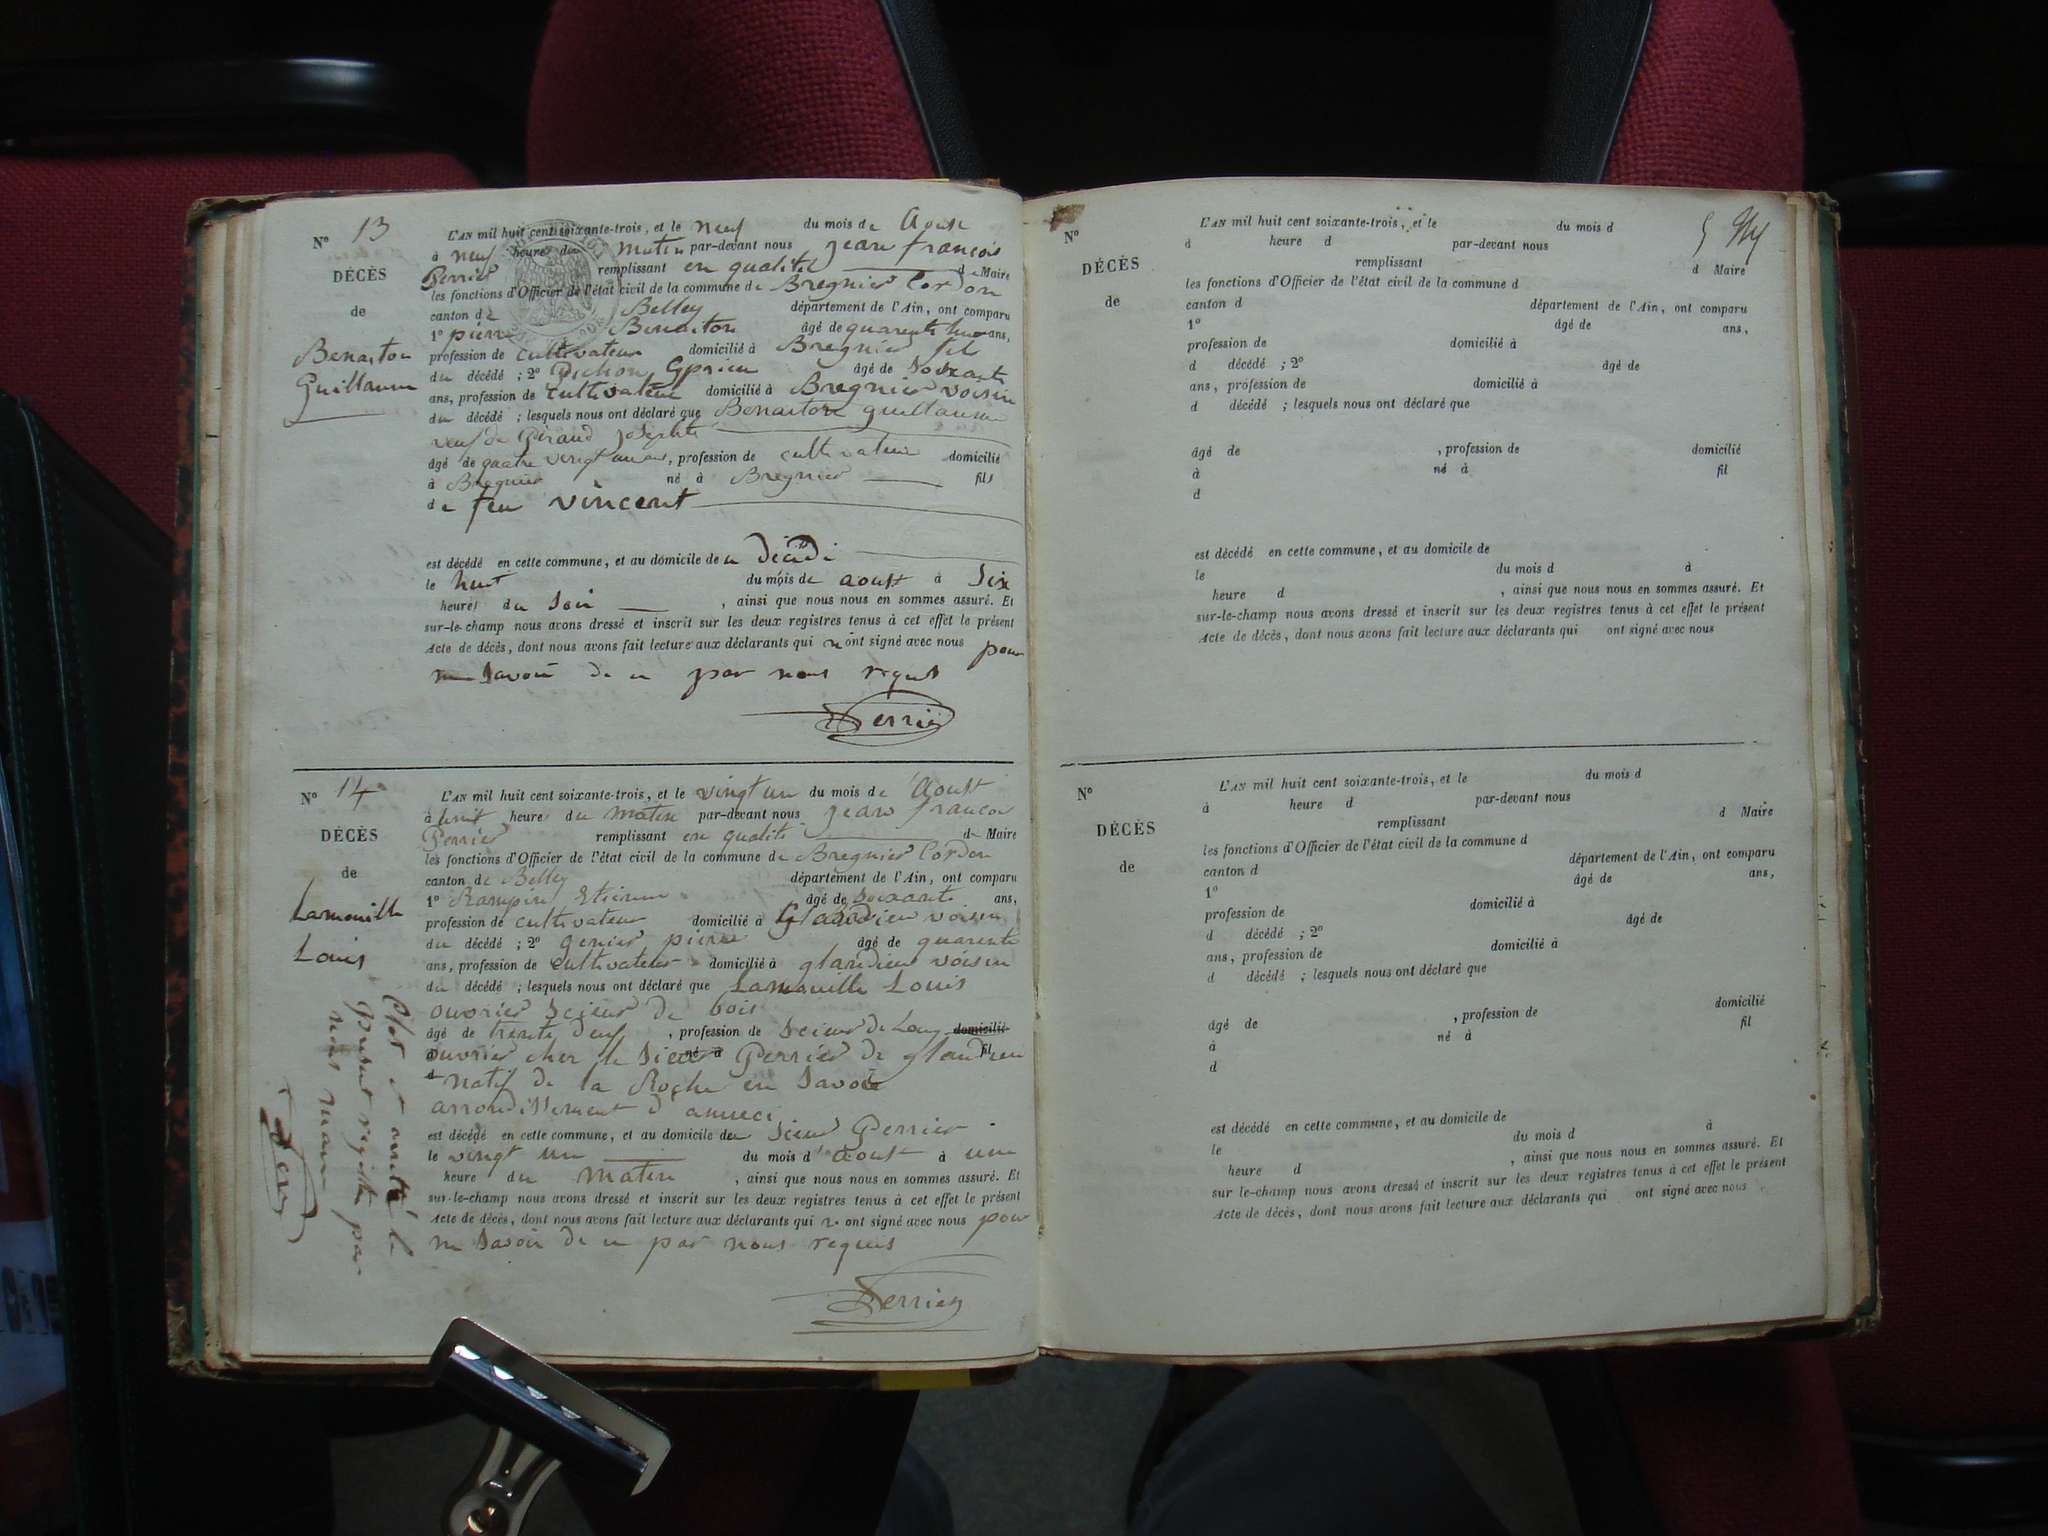 N° 13
DÉCÈS
de
Benaiton
Guillaume
L'AN mil huit cent soixante-trois, et le neuf du mois de Aoust
à neuf heure du matin par-devant nous jean françois
Perrier remplissant en qualité de Maire
les fonctions d'Officier de l'état civil de la commune de Bregnier Cordon
canton de Belley département de l'Ain, ont comparu
1° pierre Benaiton âgé de quarente ans,
profession de cultivateur domicilié à Bregnier fils
du décédé ; 2° Pichon âgé de Soixante
ans, profession de cultivateur domicilié à Bregnier voisin
du décédé ; lesquels nous ont déclaré que Benaiton guillaume
veuf de Giraud josephte
âgé de quatre vingt , profession de cultivateur domicilié
à Bregnier né à Bregnier fils
de feu vincent
est décédé en cette commune, et au domicile de
le huit du mois de aoust à Six
heure du Soir , ainsi que nous nous en sommes assuré. Et
sur-le-champ nous avons dressé et inscrit sur les deux registres tenus à cet effet le présent
Acte de décès, dont nous avons fait lecture aux déclarants qui n ont signé avec nous pour
ne Savoir de ce par nous requis
Perrier
N° 14
DÉCÈS
de
Lamouille
Louis
L'AN mil huit cent soixante-trois, et le vingt un du mois de Aoust
à huit heure du matin par-devant nous jean francois
Perrier remplissant en qualité de Maire
les fonctions d'Officier de l'état civil de la commune de Bregnier Cordon
canton de Belley département de l'Ain, ont comparu
1° Rampin Etienne âgé de Soixante ans,
profession de cultivateur domicilié à Glandieu voisin
du décédé ; 2° genier pierre âgé de quarente
ans, profession de cultivateur domicilié à glandieu voisin
du décédé ; lesquels nous ont déclaré que Lamouille Louis
ouvrier Scieur de bois
âgé de trente deux , profession de Scieur de Long domicilié
ouvrier cher le Sieur né à Perrier de glandieu fil
d natif de la Roche en Savoie
arrondissement d'anneci
est décédé en cette commune, et au domicile de Sieur Perrier
le vingt un du mois d'aoust à une
heure du matin , ainsi que nous nous en sommes assuré. Et
sur-le-champ nous avons dressé et inscrit sur les deux registres tenus à cet effet le présent
Acte de décès, dont nous avons fait lecture aux déclarants qui n ont signé avec nous pour
ne Savoir de ce par nous requis
Perrier
Clos et arrété le
present registre par
nous maire
N°
DÉCÈS
de
5
L'AN mil huit cent soixante-trois, et le du mois d
à heure d par-devant nous
remplissant d Maire
les fonctions d'Officier de l'état civil de la commune d
canton d département de l'Ain, ont comparu
1° âgé de ans,
profession de domicilié à
d décédé ; 2° âgé de
ans, profession de domicilié à
d décédé ; lesquels nous ont déclaré que
âgé de , profession de domicilié
à né à fil
d
est décédé en cette commune, et au domicile de
le du mois d à
heure d , ainsi que nous nous en sommes assuré. Et
sur-le-champ nous avons dressé et inscrit sur les deux registres tenus à cet effet le présent
Acte de décès, dont nous avons fait lecture aux déclarants qui ont signé avec nous
N°
DÉCÈS
de
L'AN mil huit cent soixante-trois, et le du mois d
à heure d par-devant nous
remplissant d Maire
les fonctions d'Officier de l'état civil de la commune d
canton d département de l'Ain, ont comparu
1° âgé de ans,
profession de domicilié à
d décédé ; 2° âgé de
ans, profession de domicilié à
d décédé ; lesquels nous ont déclaré que
âgé de , profession de domicilié
à né à fil
d
est décédé en cette commune, et au domicile de
le du mois d à
heure d , ainsi que nous nous en sommes assuré. Et
sur le-champ nous avons dressé et inscrit sur les deux registres tenus à cet effet le présent
Acte de décès, dont nous avons fait lecture aux déclarants qui ont signé avec nous